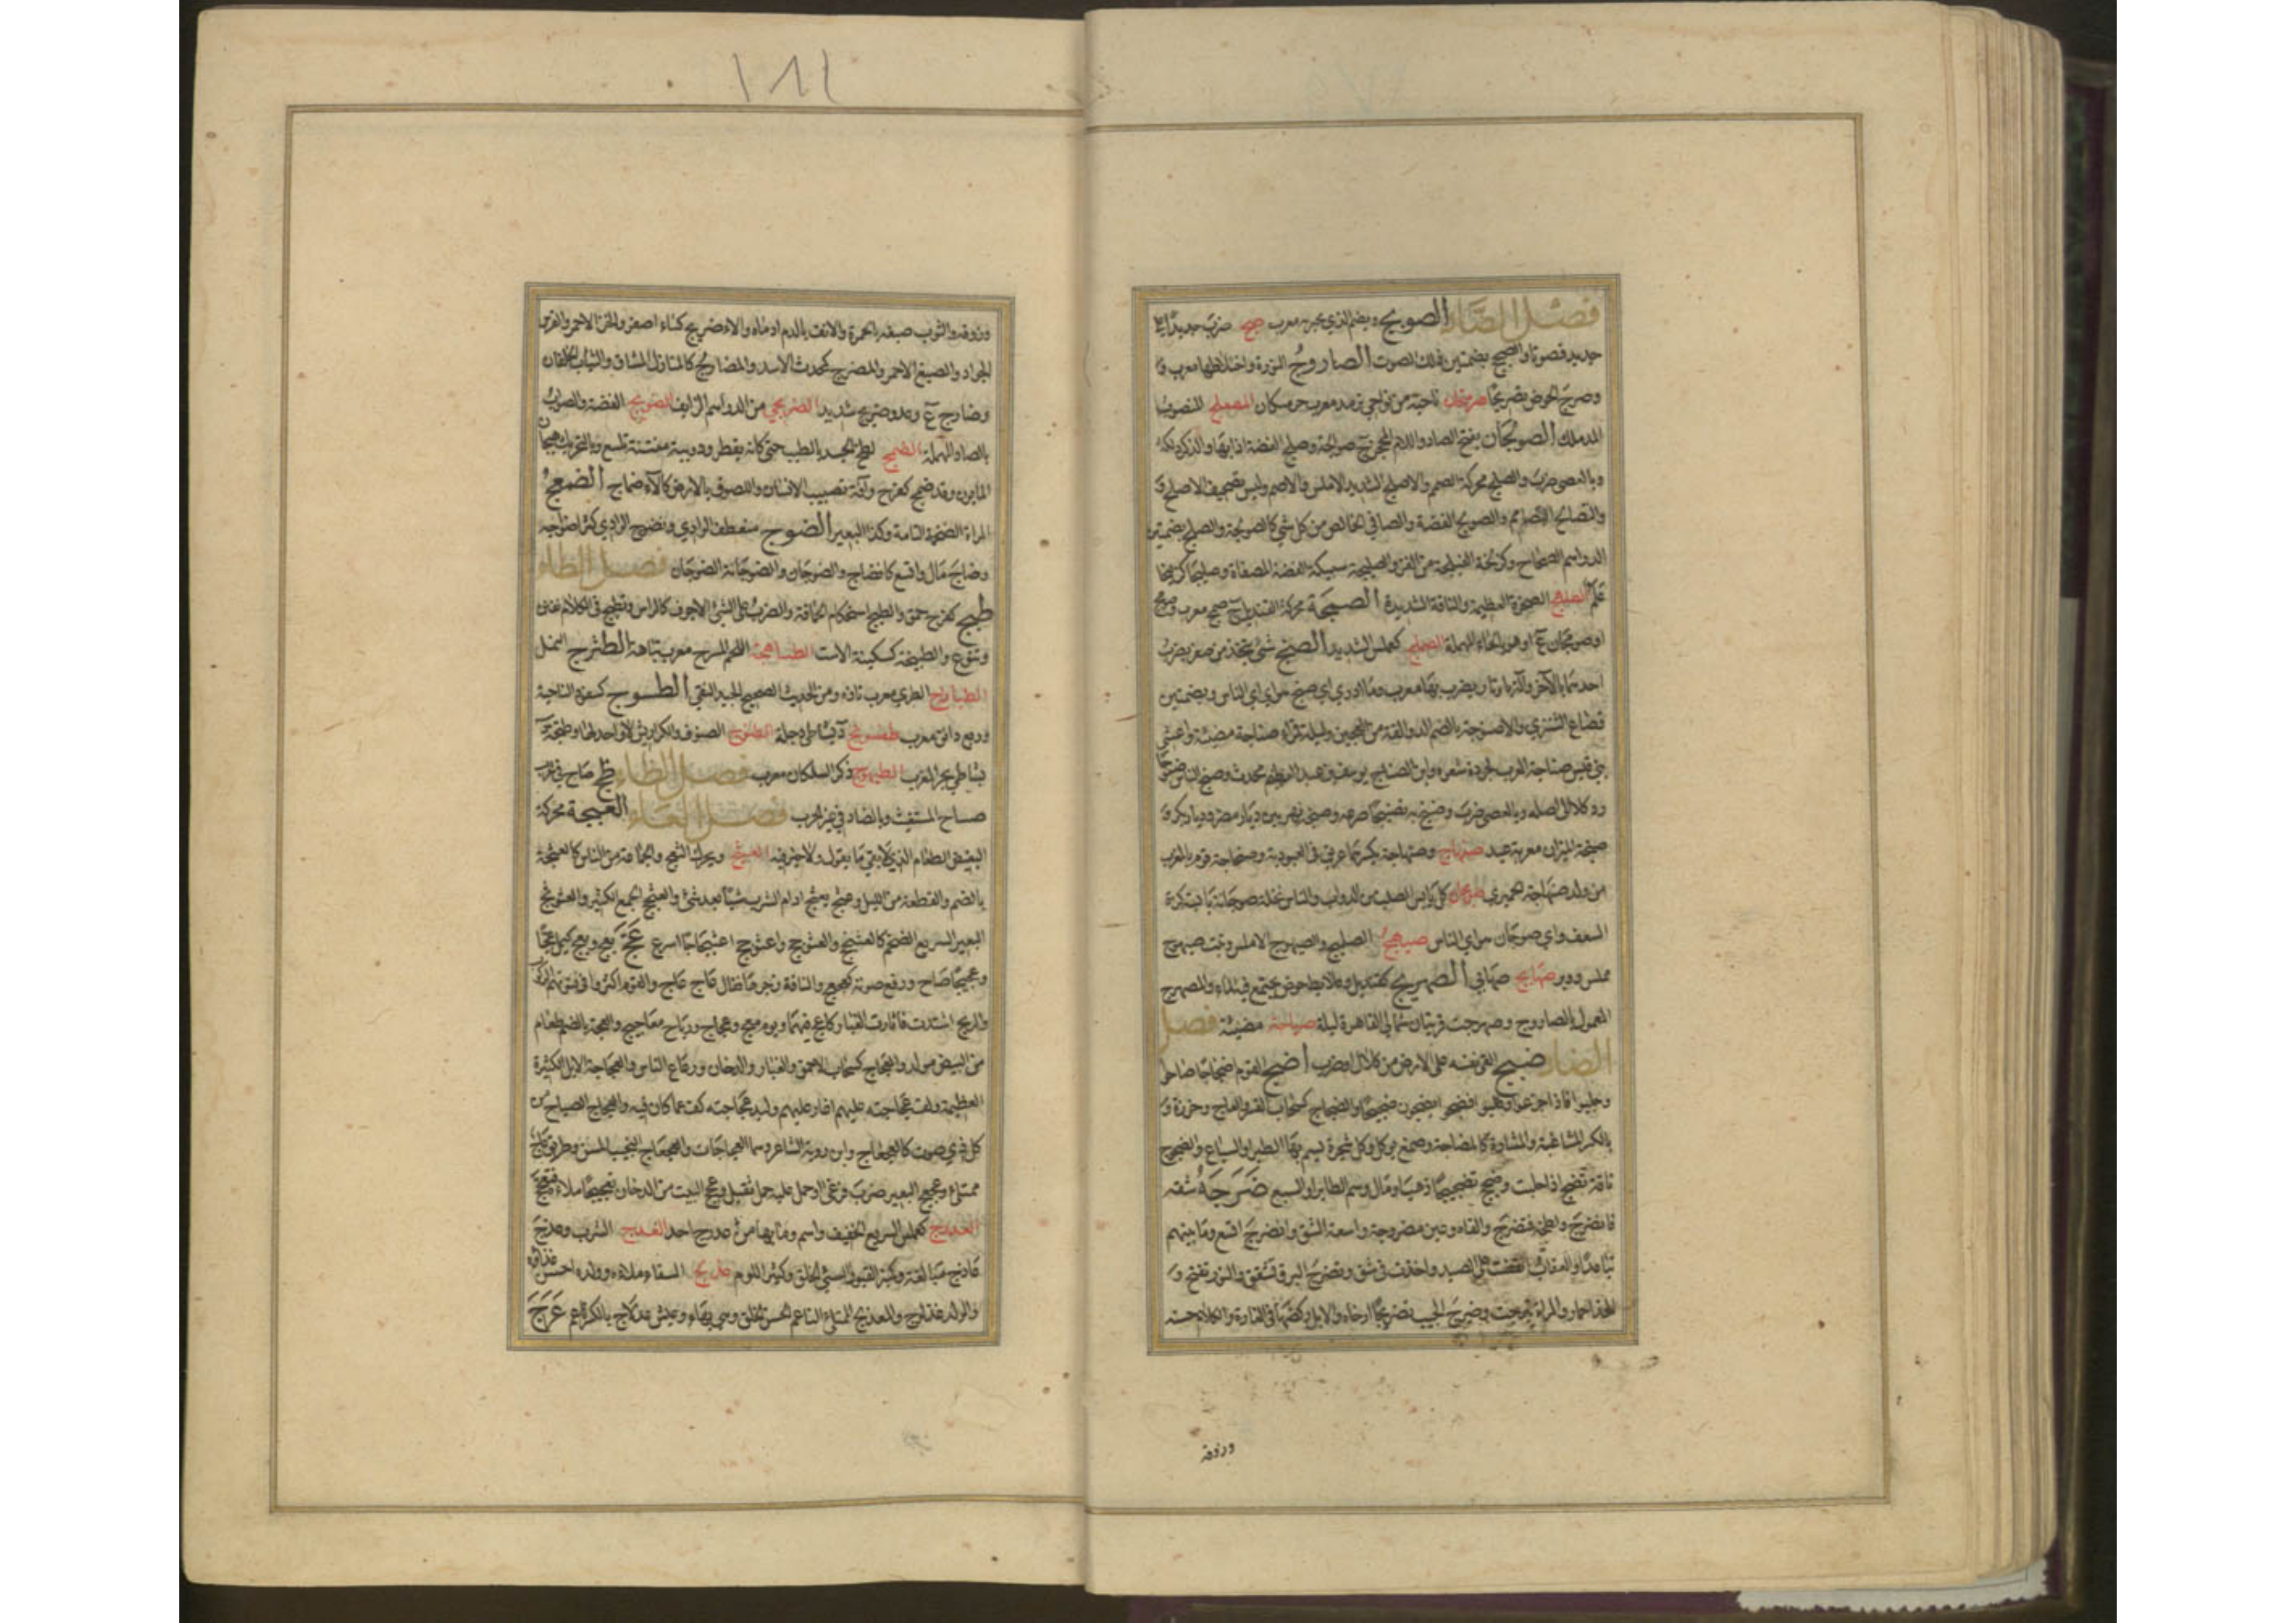 فصل الصاد الصوبج ويضم الذي يخبز به معرب صج ضرب حديدا على
حديد فصوتا والصجج بضمتين ذلك الصوت الصاروج النورة واخلاطها معرب و
وصرج الحوض تصريجا صرمنجان ناحية من نواحي ترمد معرب جرمنكان المصعلج المنصوب
المدملك الصولجان بفتح الصاد واللام المحجن ج صوالجة وصلج الفضة اذابها والذكر دلكه
وبالعصى ضرب والصلج محركة الصمم والاصلج الشديد الاملس والاصم وليس تصحيف الاصلخ و
والتصالج التصامم والصولج الفضة والصافي الخالص من كل شي كالصولجة والصلج بضمتين
الدراهم الصحاح وكزلخة الفيلجة من القز والصليجة سبيكة الفضة المصفاة
علم الصلهج الصخرة العظيمة والناقة الشديدة الصمجة محركة القنديل ج صمج معرب وصومج
او صومجان ع او هو بالحاء المهملة الصملج كعملس الشديد الصنج شئ يتخذ من صفر يضرب
احدهما بالاخر والة باوتار يضرب بها معرب وما ادري اي صنج هو اي اي الناس وبضمتين
قصاع الشيزى والاصنوجة بالضم الدوالقة من العجين وليلة قمراء صناجة مضيئة واعشى
بني قيس صناجة العرب لجودة شعره وابن الصناج يوسف بن عبد العظيم محدث وصنج الناس صنوجا
رد كلا الى اصله وبالعصى ضرب وصنج به تصنيجا صرعه وصنجة نهر بين ديار مضر وديار بكر و
صنجة الميزان معربة عبد صنهاج وصنهاجة بكسرهما عريق في العبودية وصنهاجة قوم بالمغرب
من ولد صنهاجة الحميري صوجان كل يابس الصلب من الدواب والناس نخلة صوجانة يابسة كزة
السعف واي صوجان هو اي الناس صيهج الصلهج والصيهوج الاملس وبيت صيهوج
مملس ووبر صهابج صهابي الصهريج كقنديل وعلابط حوض يجتمع فيه الماء والمصهرج
المعمول بالصاروج وصهرجت قريتان شمالي القاهرة ليلة صياجة مضيئة فصل
الضاد ضبج القى نفسه على الارض من كلال او ضرب اضج القوم اضجاجا صاحوا
وجلبوا فاذا جزعوا وغلبوا فضجوا يضجون ضجيجا والضجاج كسحاب القسر والعاج وخرزة و
بالكسر المشاغبة والمشارة كالمضاجة وصمغ يوكل وكل شجرة يسم بها الطير او السباع والضجوج
ناقة تضج اذا حلبت وضجج تضجيجا ذهب او مال وسم الطاير او السبع ضرجه شقه
فانضرج ولطخه فتضرج والقاه وعين مضروجة واسعة الشق وانضرج اتسع وما بينهم
تباعد والعقاب انقضت على الصيد واخذت في شق وتضرج البرق تشقق والنور تفتح و
الخد احمار والمراة تبرجت وضرج الجيب تضريجا ارخاه والابل ركضها في الغارة والكلام حسنه
ورزوقه
١٨٨
وزوقه والثوب صبغه بالحمرة والانف بالدم ادماه والاضريج كساء اصفر والخز الاحمر والفرس
الجواد والصبغ الاحمر والمضرج كمحدث الاسد والمضاريج كالمنازل المشاق والثياب الخلقان
وضارج ع وعدو ضريج شديد الضربجي من الدراهم الزايف الضولج الفضة والصواب
بالصاد المهملة الضمج لطخ الجسد بالطيب حتى كانه يقطر ودويبة منتنة تلسع وبالتحريك هيجان
المابون وقد ضمج كفرح وآفة تصيب الانسان واللصوق بالارض كالاضماج الضمعج
المراة الضخمة التامة وكذا البعير الضوج منعطف الوادي وتضوج الوادي كثر اضواجه
وضاج مال واتسع كانضاج والضوجان والضوجانة الصوجان فصل الطاء
طبج كفرح حمق والطبج استحكام الحماقة والضرب على الشئ الاجوف كالراس وتطبج في الكلام تفنن
وتنوع والطبيجة كسكينة الاست الطباهجة اللحم المشرح معرب تباهه الطثرج النمل
الطازج الطري معرب تازه ومن الحديث الصحيح الجيد النقي الطسوج كسفود الناحية
وربع دانق معرب طفسونج د بشاطئ دجلة الطنوج الصنوف والكراريس لا واحد لها وطنجة د
بشاطئ بحر المغرب الطيهوج ذكر السلكان معرب فصل الظاء ظج صاح في الحرب
صياح المستغيث وبالضاد في غير الحرب فصل العين العبجة محركة
البغيض الطغام الذي لا يعي ما يقول ولا خير فيه العثج ويحرك الثعج والجماعة من الناس كالعثجة
بالضم والقطعة من الليل وعثج يعثج ادام الشرب شيئا بعد شئ والعثجج الجمع الكثير والعثوثج
البعير السريع الضخم كالعثنجج والعثوجج واعثوثج اعثيجاجا اسرع عج يعج ويعج كيمل عجا
وعجيجا صاح ورفع صوته كعجعج والناقة زجرها فقال عاج عاج والقوم اكثروا في فنونهم الركوب
والريح اشتدت فاثارت الغبار كاعج فيهما ويوم معج وعجاج ورياح معاجيج والعجة بالضم طعام
من البيض مولد والعجاج كسحاب الاحمق والغبار والدخان ورعاع الناس والعجاجة الابل الكثيرة
العظيمة ولف عجاجته عليهم اغار عليهم ولبد عجاجته كف عما كان فيه والعجاج الصياح من
كل ذي صوت كالعجعاج وابن روبة الشاعر وهما العجاجان والعجعاج النجيب المسن وطريق عاج
ممتلئ وعجعج البعير ضرب فرغى او حمل عليه حمل ثقيل وعجج البيت من الدخان تعجيجا ملاه فتعجج
العدرج كعملس السريع الخفيف واسم وما بها من عدرج احد العذج الشرب وعذج
عاذج مبالغة وكمنبر الغيور السيئ الخلق والكثير اللوم عذلج السقاء ملاه وولده احسن غذاءه
والولد عذلوج والمعذلج الممتلئ الناعم الحسن الخلق وهي بهاء وعيش عذلاج بالكسر ناعم عرج